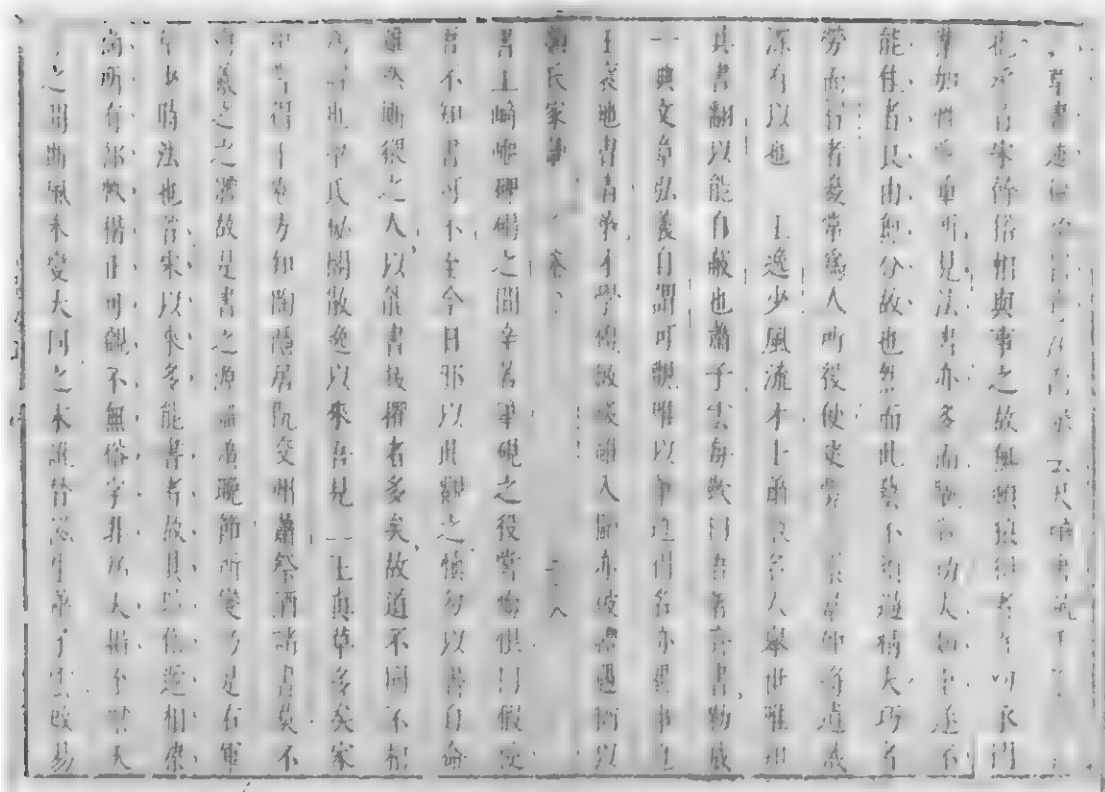 草書迹微
也承晉宋餘俗相與事之故無頓狼狽者吾幼承門
業加性愛重所見法書亦多而翫習功夫頗至遂不
能佳者良由無分故也然而此藝不須過精夫巧者
勞而智者憂常爲人所役使更覺爲累韋仲將遺戒
深有以也 王逸少風流才士蕭散名人舉世唯知
其書翻以能自蔽也蕭子雲每歎曰吾著齊書勒成
一典文章弘義自謂可觀唯以筆迹得名亦異事也
王褒地胄清華才學優敏後雖入關亦被禮遇猶以
顔氏家訓 卷下 二十八
書工崎嶇碑碣之間辛苦筆硯之役嘗悔恨曰假使
吾不知書可不至今日邪以此觀之慎勿以書自命
雖然廝猥之人以能書拔擢者多矣故道不同不相
爲謀也梁氏秘閣散逸以來吾見二王真草多矣家
中嘗得十卷方知陶隱居阮交州蕭祭酒諸書莫不
得羲之之體故是書之淵源蕭晚節所變乃是右軍
年少時法也晉宋以來多能書者故其時俗遞相染
尚所有部帙楷正可觀不無俗字非爲大損至梁天
監之間斯風未變大同之末訛替滋生蕭子雲改易